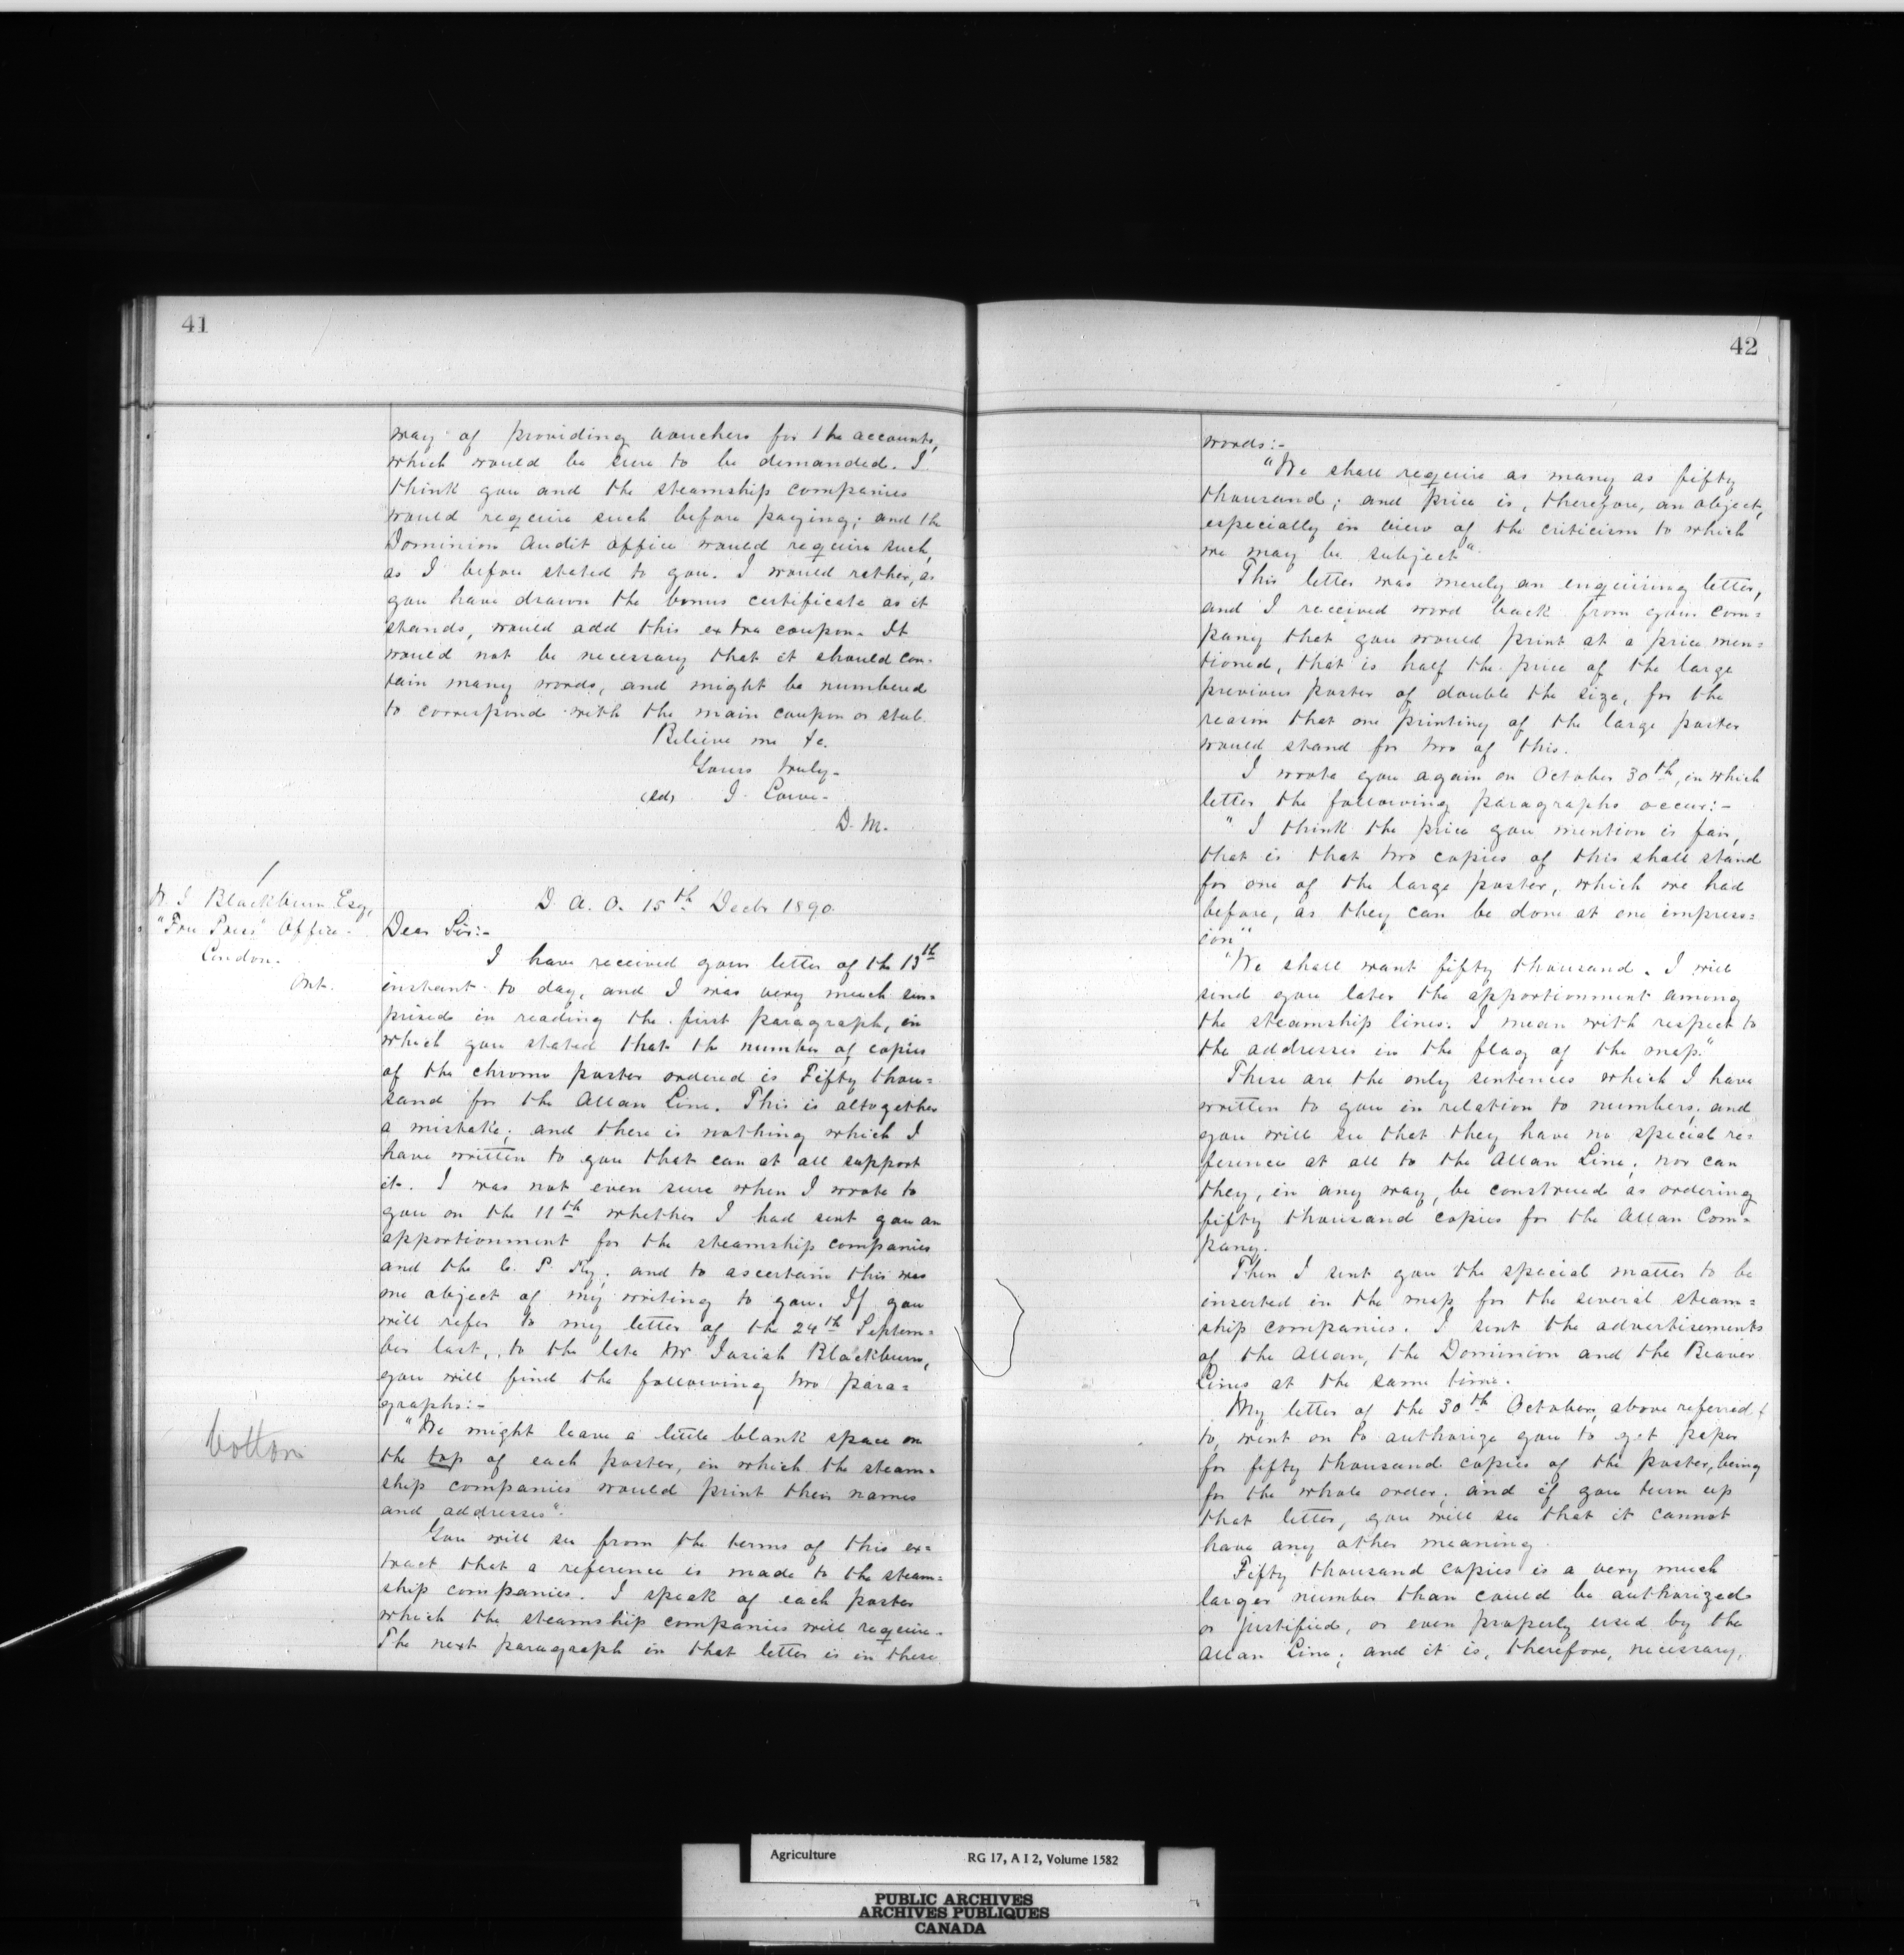 41
way of providing vouchers for the accounts,
which would be sure to be demanded. I
think you and the steamship companies
would require such before paying; and the
Dominion Audit Office would require such,
as I before stated to you. I would rather, as
you have drawn the bonus certificate as it
stands, would add this extra coupon. It
would not be necessary that it should con-
tain many words, and might be numbered
to correspond with the main coupon or stub.
Believe me &c.
Yours truly-
(sd) J. Lowe-
D. M.
W. J. Blackburn Esq,
"Free Press" Office-
London.
Ont.
D. A. O. 15th Decbr 1890.
Dear Sir:-
I have received your letter of the 13th
instant to day, and I was very much sur=
prised in reading the first paragraph, in
which you stated that the number of copies
of the chromo poster ordered is Fifty thou=
sand for the Allan Line. This is altogether
a mistake; and there is nothing which I
have written to you that can at all support
it. I was not even sure when I wrote to
you on the 11th whether I had sent you an
apportionment for the steamship companies
and the C. P. Ry; and to ascertain this was
one object of my writing to you. If you
will refer to my letter of the 24th Septem=
ber last, to the late Mr Josiah Blackburn,
you will find the following two para=
graphs:-
bottom
"We might leave a little blank space on
the top of each poster, in which the steam=
ship companies would print their names
and addresses".
You will see from the terms of this ex=
tract that a reference is made to the steam=
ship companies. I speak of each poster
which the steamship companies will require.
The next paragraph in that letter is in these
42
words:-
"We shall require as many as fifty
thousand; and price is, therefore, an object,
especially in view of the criticism to which
we may be subject".
This letter was merely an enquiring letter,
and I received word back from your com=
pany that you would print at a price men=
tioned, that is half the price of the large
previous poster of double the size, for the
reason that one printing of the large poster
would stand for two of this.
I wrote you again on October 30th, in which
letter the following paragraphs occur:-
"I think the price you mention is fair,
that is that two copies of this shall stand
for one of the large poster, which we had
before, as they can be done at one impress=
ion"
"We shall want fifty thousand. I will
send you later the apportionment among
the steamship lines. I mean with respect to
the addresses in the flag of the map."
These are the only sentences which I have
written to you in relation to numbers; and
you will see that they have no special re=
ference at all to the Allan Line; nor can
they, in any way, be construed as ordering
fifty thousand copies for the Allan Com=
pany.
Then I sent you the special matter to be
inserted in the map for the several steam=
ship companies. I sent the advertisements
of the Allan, the Dominion and the Beaver
Lines at the same time.
My letter of the 30th October, above referred
to, went on to authorize you to get paper
for fifty thousand copies of the poster, being
for the whole order; and if you turn up
that letter, you will see that it cannot
have any other meaning.
Fifty thousand copies is a very much
larger number than could be authorized
or justified, or even properly used by the
Allan Line; and it is, therefore, necessary,
Agriculture
RG 17, A I 2, Volume 1582
PUBLIC ARCHIVES
ARCHIVES PUBLIQUES
CANADA